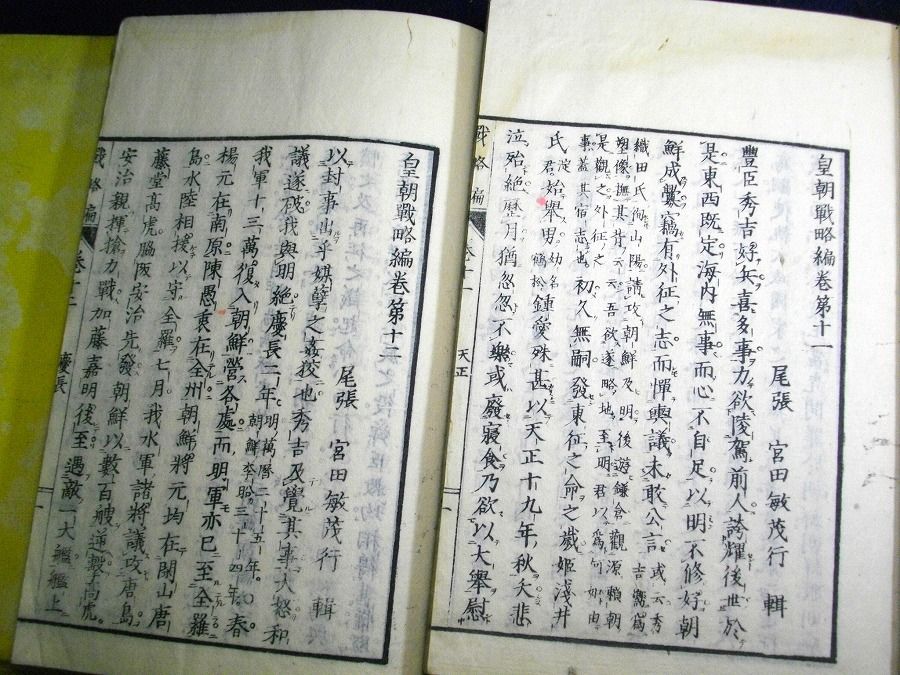 皇朝戰略編卷第十一
尾張 宮田敏茂行 輯
豐臣秀吉好兵喜多事力欲陵駕前人誇耀後世於
是東西既定海内無事而心不自足以明不修好朝
鮮成釁竊有外征之志而憚輿議未敢公言 或云秀吉嚮爲
織田氏徇山陽請攻朝鮮及明後遊鎌倉觀源賴朝
塑像撫其背云云吾欲遂略地至明君以爲何如由
是觀之外征之事蓋其宿志也 初久無嗣發東征之命之歲姬淺井
氏 淀君 始舉男 幼名鶴松 鍾愛殊甚以天正十九年秋夭悲
泣殆絶歷月猶忽忽不樂或廢寢食乃欲以大舉慰
戰略編 卷十一 天正 一
皇朝戰略編卷第十二
尾張 宮田敏茂行 輯
以封事出乎媒孽之姦狡也秀吉及覺其事大怒和
議遂破我與明絶慶長二年 明萬曆二十五年朝鮮李昖三十四年 春
我軍十三萬復入朝鮮營各處而明軍亦已至全羅
楊元在南原陳愚衷在全州朝鮮將元均在閑山唐
島水陸相援以守全羅七月我水軍諸將議攻唐島
藤堂高虎脇阪安治先發朝鮮以數百艘逆擊高虎
安治親揮搶力戰加藤嘉明後至遇敵一大艦艦上
戰略編 卷十二 慶長 一